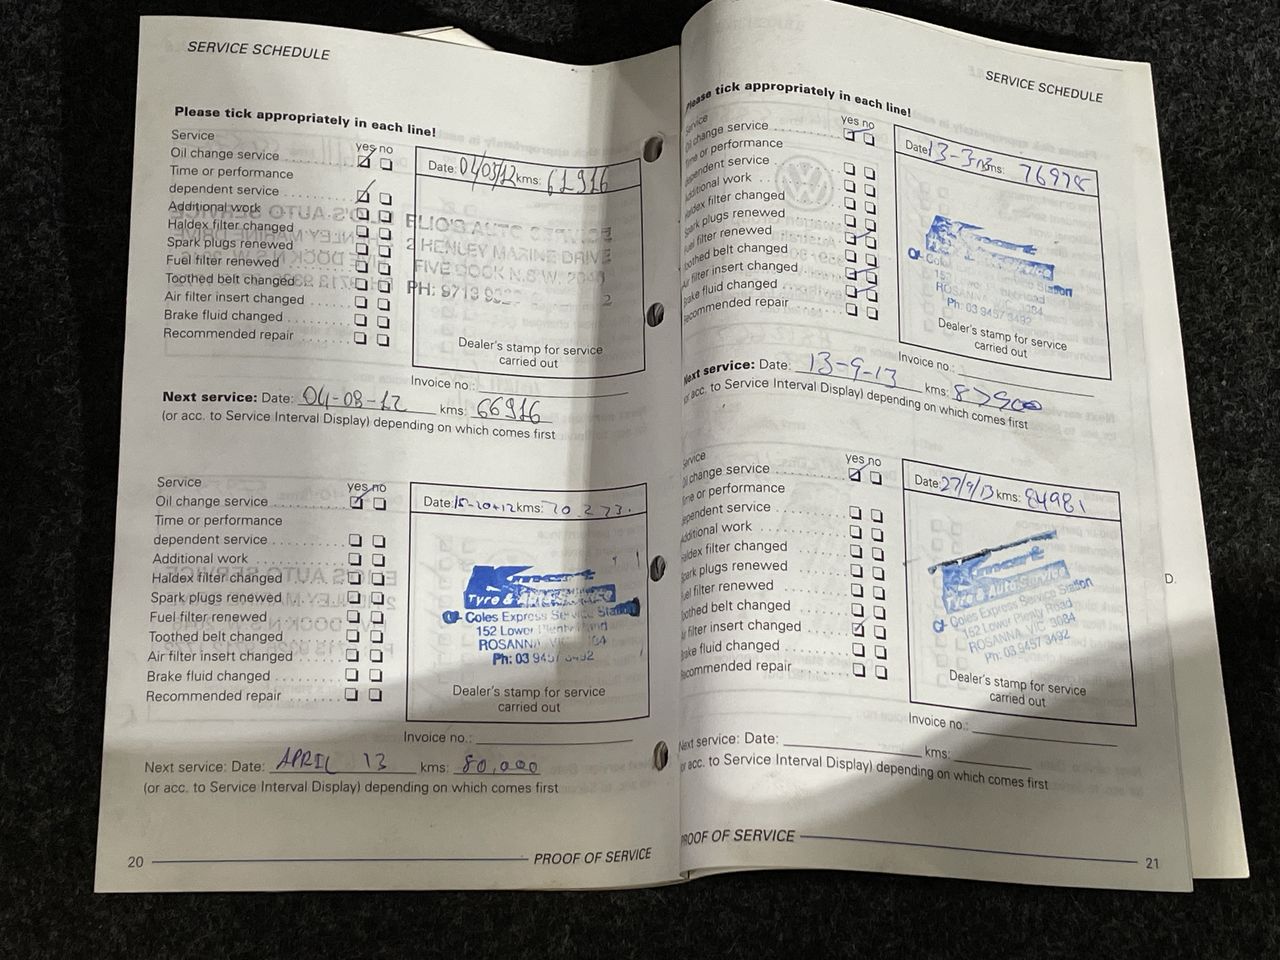 SERVICE SCHEDULE
Please tick appropriately in each line!
Service
yes no
Oil change service
Time or performance
dependent service
Additional work
Haldex filter changed
Spark plugs renewed
Fuel filter renewed
Toothed belt changed
Air filter insert changed
Brake fluid changed
Recommended repair
Date: 04/03/12 kms: 61916
ELIO'S AUTO SERVICE
2 HENLEY MARINE DRIVE
FIVE DOCK N.S.W. 2046
PH: 9713
Dealer's stamp for service
carried out
Invoice no.:
Next service: Date: 04-08-12 kms: 66916
(or acc. to Service Interval Display) depending on which comes first
Service
yes no
Oil change service
Time or performance
dependent service
Additional work
Haldex filter changed
Spark plugs renewed
Fuel filter renewed
Toothed belt changed
Air filter insert changed
Brake fluid changed
Recommended repair
Date: 15-10-12 kms: 70273.
Kmart
Tyre & Auto Service
C/- Coles Express Service Station
152 Lower Plenty Road
ROSANNA VIC 3084
Ph: 03 9457 3492
Dealer's stamp for service
carried out
Invoice no.:
Next service: Date: APRIL 13 kms: 80,000
(or acc. to Service Interval Display) depending on which comes first
20
PROOF OF SERVICE
SERVICE SCHEDULE
Please tick appropriately in each line!
Service
yes no
Oil change service
Time or performance
dependent service
Additional work
Haldex filter changed
Spark plugs renewed
Fuel filter renewed
Toothed belt changed
Air filter insert changed
Brake fluid changed
Recommended repair
Date: 13-3-13 kms: 76978
Kmart
Service
C/- Coles Service Station
152 Lower Plenty Road
ROSANNA VIC 3084
Ph: 03 9457 3492
Dealer's stamp for service
carried out
Invoice no.:
Next service: Date: 13-9-13 kms:
or acc. to Service Interval Display) depending on which comes first
Service
yes no
Oil change service
Time or performance
dependent service
Additional work
Haldex filter changed
Spark plugs renewed
Fuel filter renewed
Toothed belt changed
Air filter insert changed
Brake fluid changed
Recommended repair
Date: 27/9/13 kms: 84981
Kmart
Tyre & Auto Service
C/- Coles Express Service Station
152 Lower Plenty Road
ROSANNA VIC 3084
Ph: 03 9457 3492
Dealer's stamp for service
carried out
Invoice no.:
Next service: Date: kms:
or acc. to Service Interval Display) depending on which comes first
PROOF OF SERVICE
21
D.